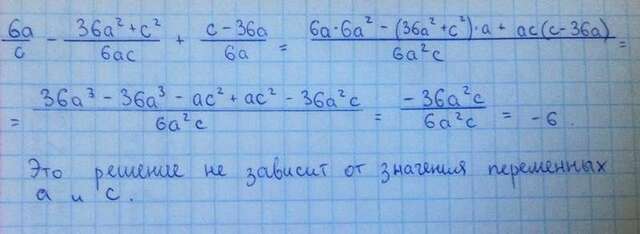 6a/c - (36a² + c²)/6ac + (c - 36a)/6a = (6a·6a² - (36a² + c²)·a + ac(c - 36a))/6a²c =
= (36a³ - 36a³ - ac² + ac² - 36a²c)/6a²c = (-36a²c)/6a²c = -6.
Это решение не зависит от значения переменных
a и c.